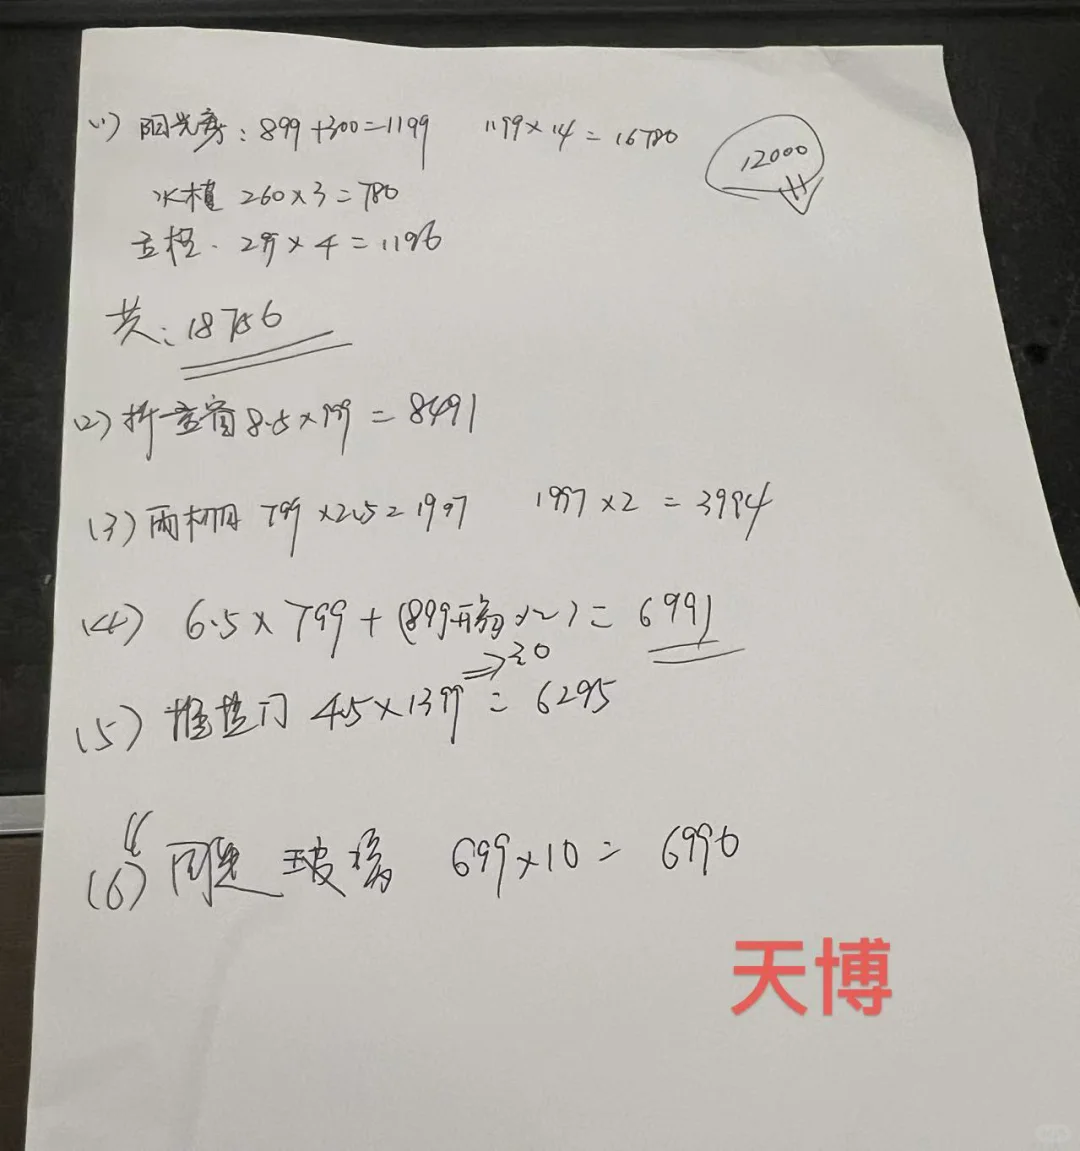 (1) 阳光房：899+300=1199 1199×14=16780
12000
水槽 260×3=780
立柱. 299×4=1196
共：18756
(2) 折叠窗 8.5×999=8491
(3) 两栅 799×2.5=1997 1997×2=3994
(4) 6.5×799+(899开窗×2)=6991
(5) 推拉门 4.5×1399=6295
(6) 玻璃 699×10=6990
天博